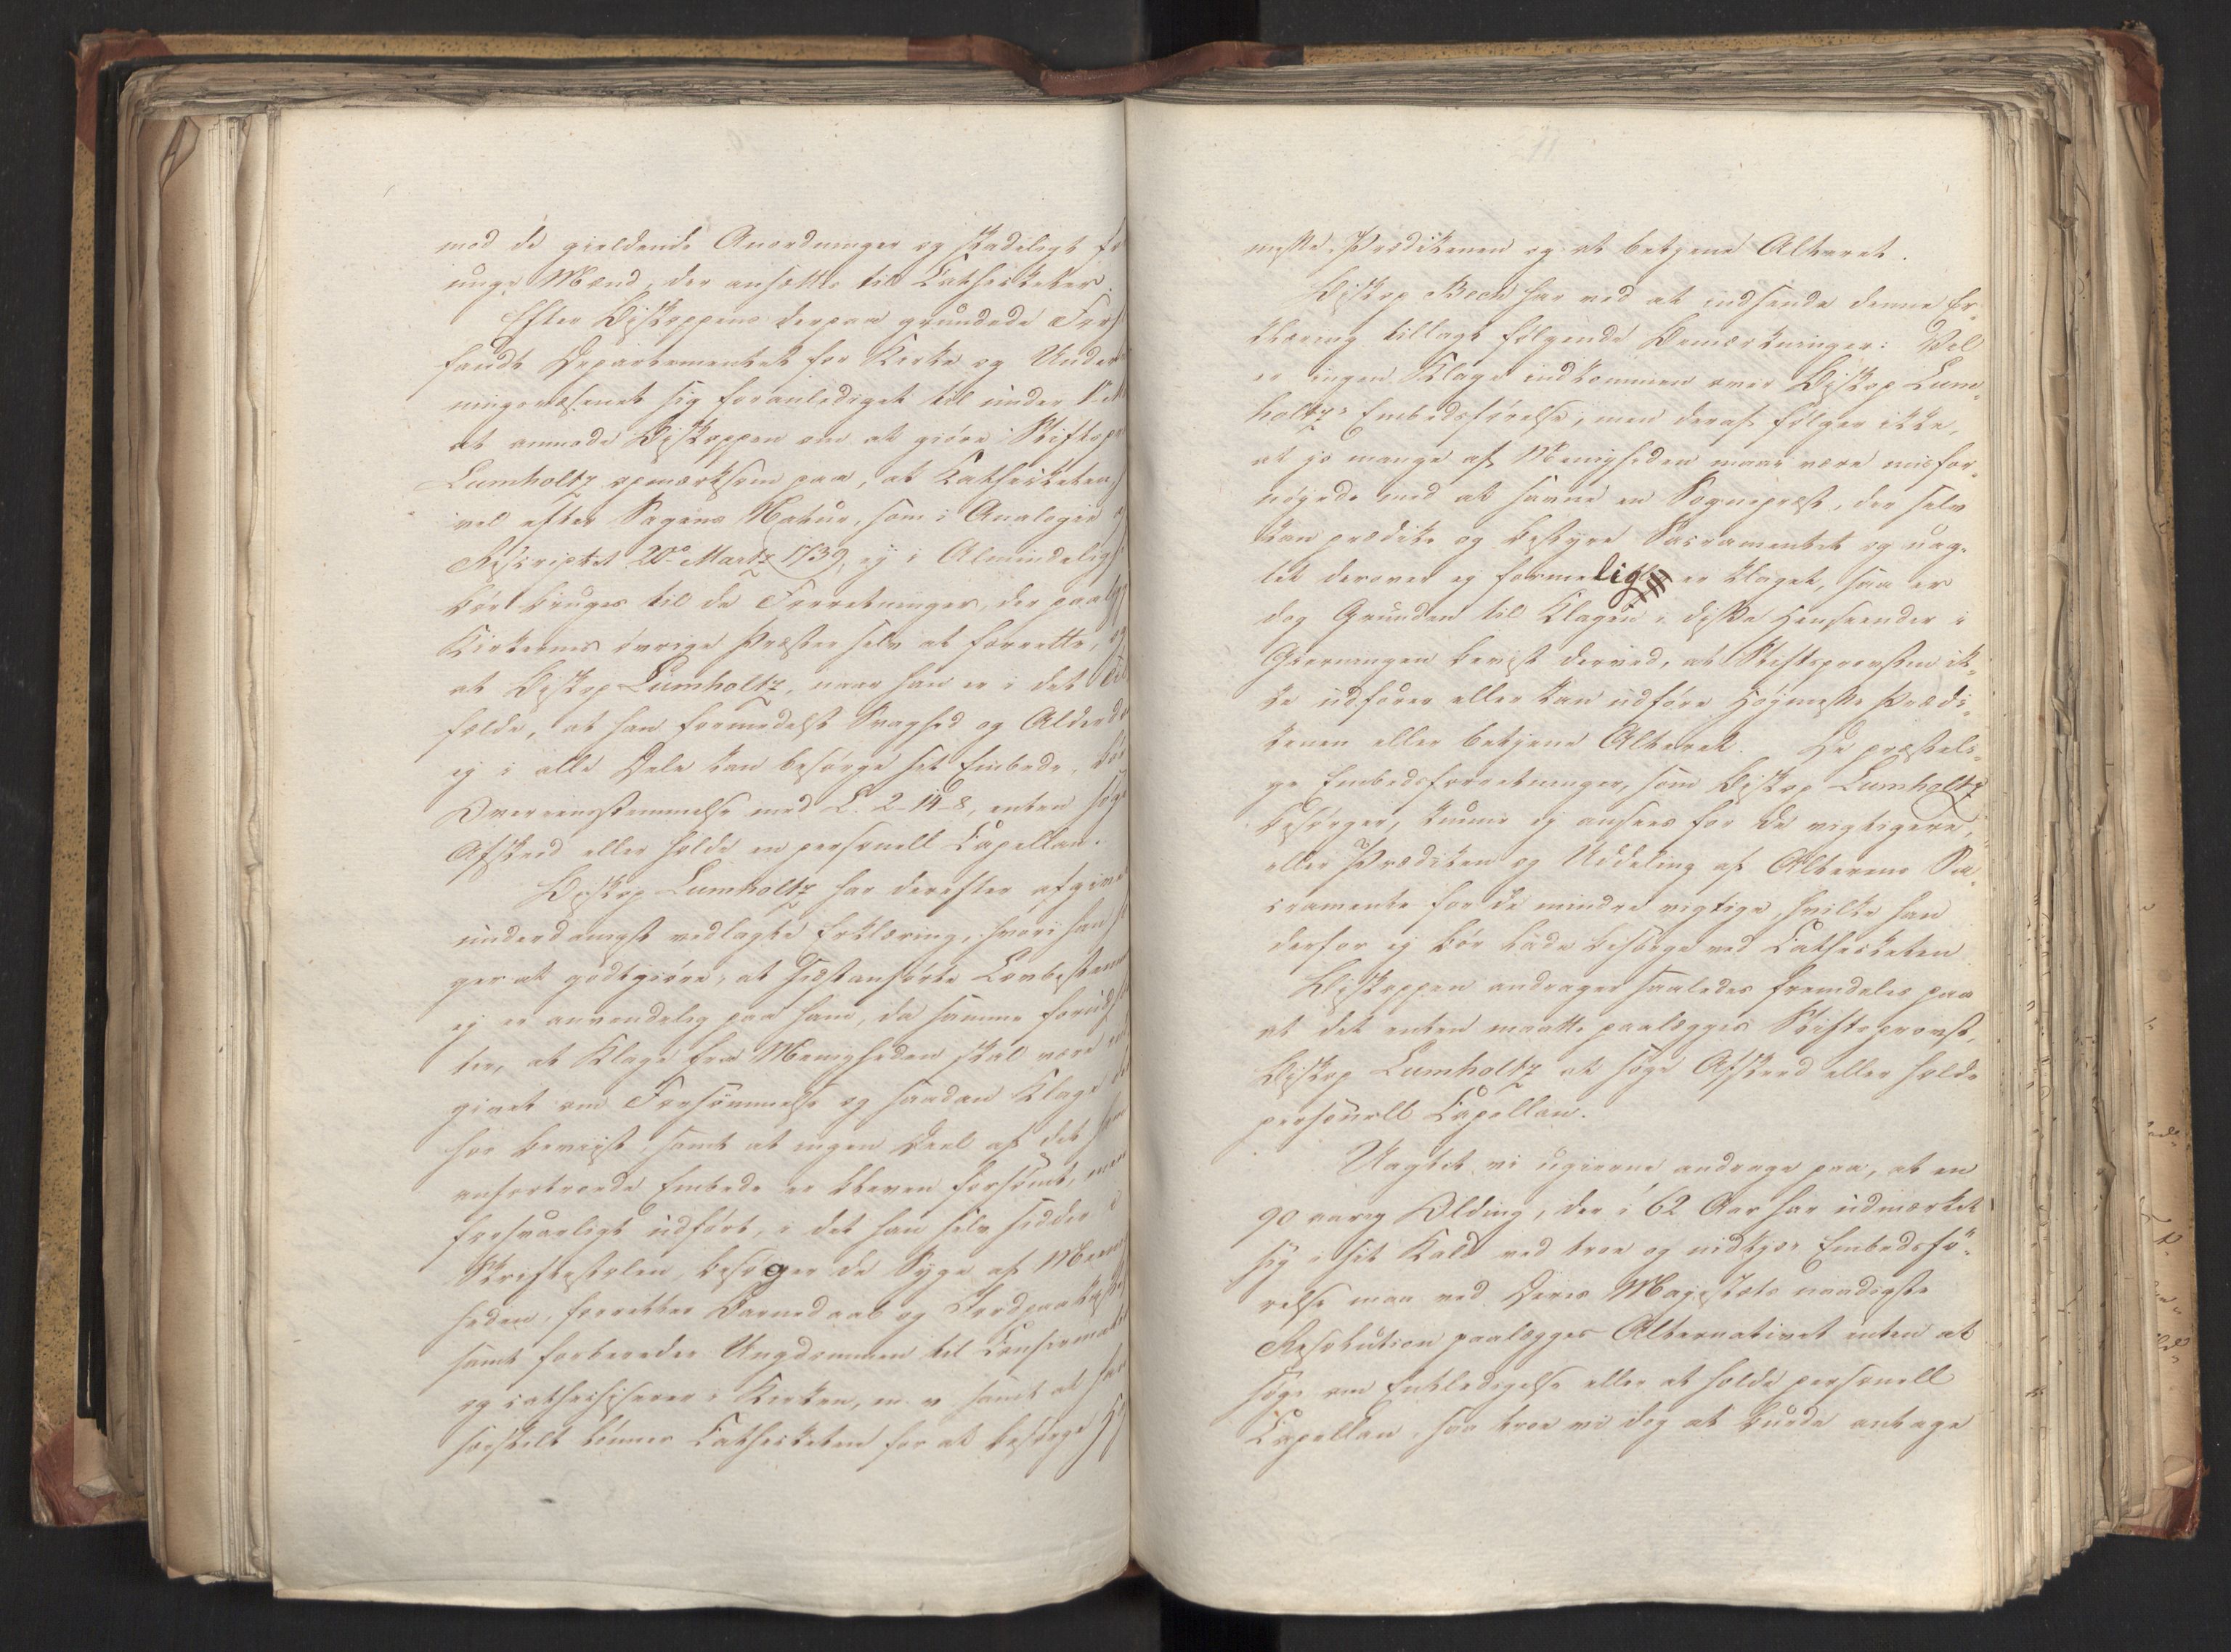 mod de gieldende Anordninger og skadeligt for
unge Mænd, der ansættes til Catheketer.
Efter Biskoppens derpaa grundede For
fandt Departementet for Kirke og Under
ningsvæsenet sig foranlediget til under 1ste
at anmode Biskoppen om at giöre Stiftspr
Lumholtz opmærksom paa, at Catheketen,
vel efter Sagens Natur, som i Analogie
Rescriptet 20de Martz 1739, ej i Almindelig
bör bruges til de Forretninger, der paalig
Kirkernes övrige Præster selv at forrette, og
at Biskop Lumholtz, naar han er i det Til
fælde, at han formedelst Svaghed og Alderdo
ej i alle Dele kan besörge sit Embede, bör
Overeensstemmelse med L. 2-14-8, enten söge
Afskeed eller holde en personell Capellan.
Biskop Lumholtz har derefter afgivet
underdanigst vedlagte Erklæring, hvori han
ger at godtgiöre, at sidstanförte Lovbestem
ej er anvendelig paa ham, da samme foruds
ter, at Klage fra Menigheden skal være
givet om Forsömmelse og saadan Klage
har beviist, samt at ingen Deel af det ham
anfortroede Embede er bleven forsömt, men
forsvarligt udfört, i det han selv sidder i
Skriftestolen, besöger de Syge af Menig
heden, forretter Barnedaab og Jordpaakastelse
samt forbereder Ungdommen til Confirmation
og cathechiserer i Kirken, m. v. samt at han
særskilt lönner Catheketen for at besörge Höi
messe-Prædikenen og at betjene Alteret.
Biskop Bech har ved at indsende denne Er„
klæring tillagt fölgende Bemærkninger: Vel
er ingen Klage indkommen over Biskop Lum„
holtz's Embedsförelse; men deraf fölger ikke,
at jo mange af Menigheden maae være misfor„
nöyede med at savne en Sognepræst, der selv
kan prædike og bestyre Sacramentet og uag„
tet derover ej formelig er klaget, saa er
dog Grunden til Klagen i disse Henseender i
Gierningen beviist derved, at Stiftsprovsten ik„
ke udförer eller kan udföre Höymesse Prædi„
kenen eller betjene Alteret. De præsteli„
ge Embedsforretninger, som Biskop Lumholtz
besörger, kunne ej ansees for de vigtigere,
eller Prædiken og Uddeling af Alterens Sa„
cramente for de mindre vigtige, hvilke han
derfor ej bör lade besörge ved Catheketen.
Biskoppen andrager saaledes fremdeles paa
at det enten maatte paalægges Stiftsprovst,
Biskop Lumholtz at söge Afskeed eller holde
personell Capellan.
Uagtet vi ugierne andrage paa, at en
90 aarig Olding, der i 62 Aar har udmærket
sig i sit Kald ved troe og nidkjær Embedsfö„
relse maa ved Deres Majestæts naadigste
Resolution paalægges Alternativet enten at
söge om Entledigelse eller at holde personell
Capellan, saa troe vi dog at burde antage